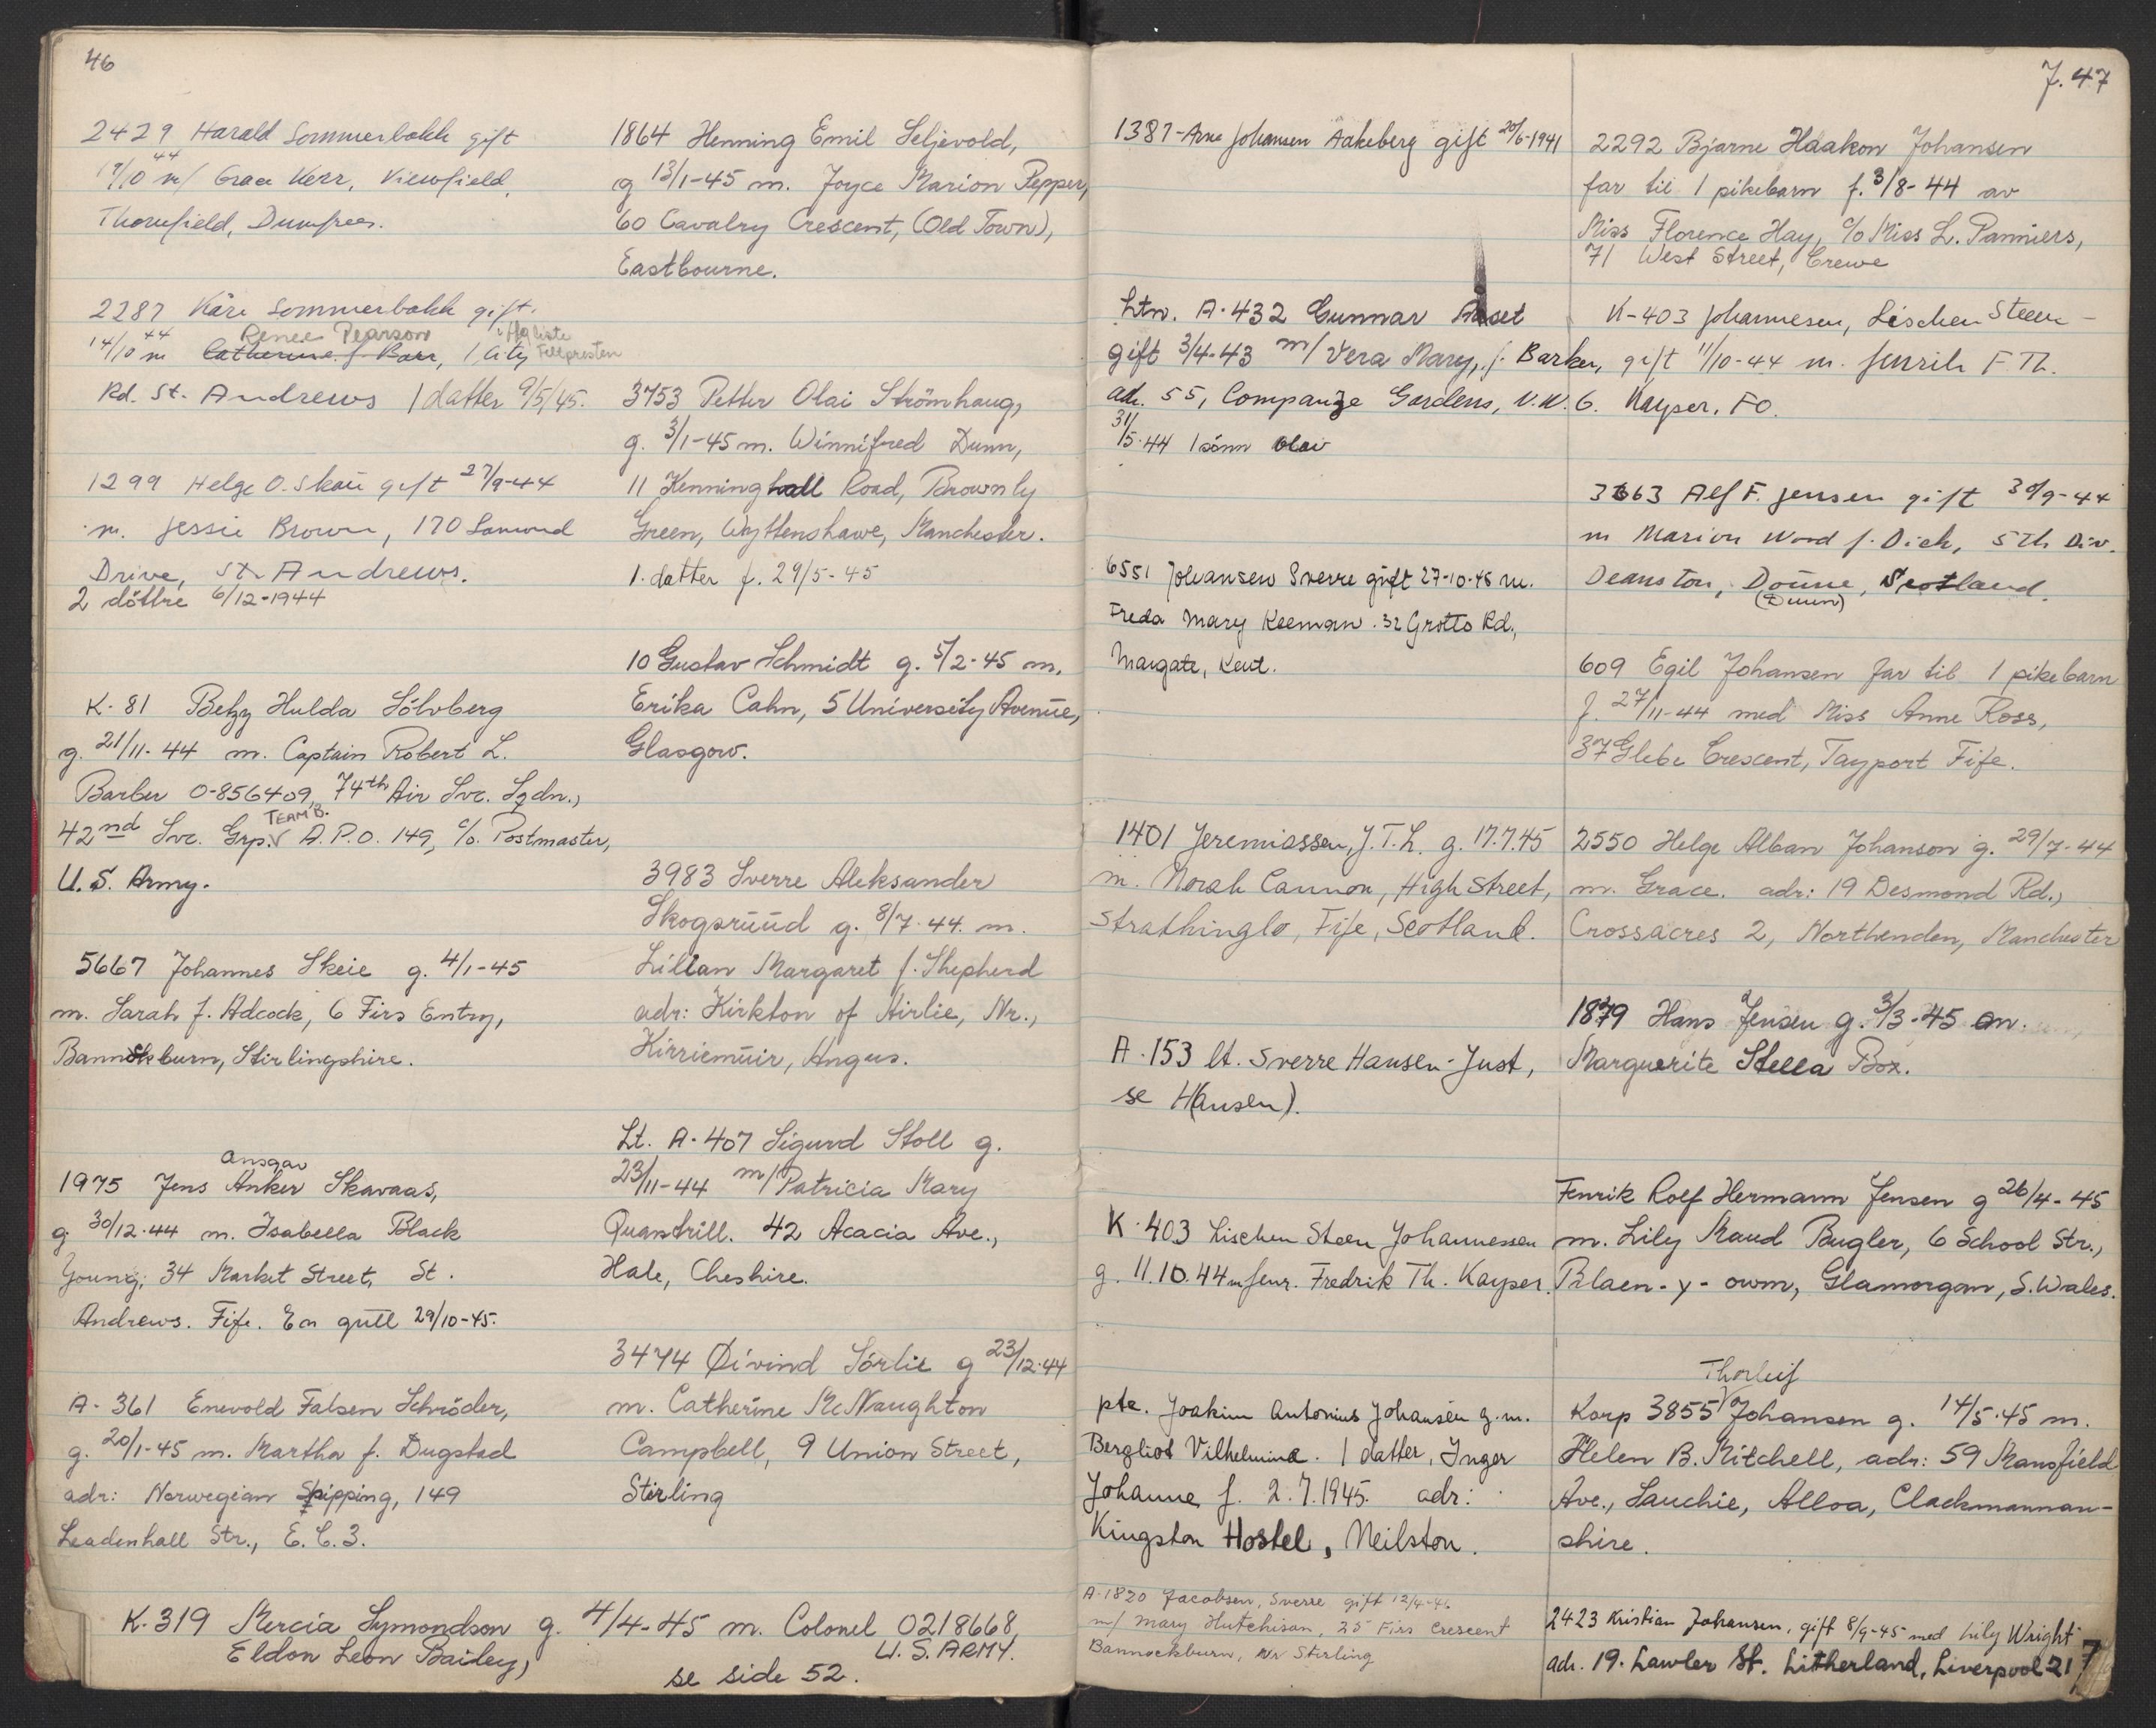 46
2429 Harald Sommerbakk gift
17/10 44 m/ Grace Kerr, Viewfield,
Thornfield, Dumfries.
2287 Kåre Sommerbakk gift.
Renee Pearson
14/10 44 m Catherine f. Barr, 1 City
Rd. St. Andrews 1 datter 9/5/45.
1299 Helge O. Skau gift 27/9-44
m. Jessie Brown, 170 Lamond
Drive, St. Andrews.
2 döttre 6/12-1944
K-81 Betzy Hulda Sölvberg
g. 21/11-44 m. Captain Robert L.
Barber 0-856409, 74th Air Svc. Sqdn.,
TEAM B.
42nd Svc. Grp. A.P.O. 149, c/o. Postmaster,
U.S. Army.
5667 Johannes Skeie g. 4/1-45
m. Sarah f. Adcock, 6 Firs Entry,
Bannockburn, Stirlingshire.
Ansgar
1975 Jens Anker Skavaas,
g. 30/12-44 m. Isabella Black
Young, 34 Market Street, St.
Andrews. Fife. En gutt 29/10-45.
A-361 Enevold Falsen Schröder,
g. 20/1-45 m. Martha f. Dugstad
adr: Norwegian Shipping, 149
Leadenhall Str., E.C.3.
1864 Henning Emil Seljevold,
g 13/1-45 m. Joyce Marion Pepper,
60 Cavalry Crescent, (Old Town),
Eastbourne.
3753 Petter Olai Strömhaug,
g. 3/1-45 m. Winnifred Dunn,
11 Kenninghall Road, Brownly
Green, Wyttenshawe, Manchester.
1. datter f. 29/5-45
10 Gustav Schmidt g. 5/2-45 m.
Erika Cahn, 5 University Avenue,
Glasgow.
3983 Sverre Aleksander
Skogsruud g. 8/7-44. m.
Lillan Margaret f. Shepherd
adr: Kirkton of Airlie, Nr.,
Kirriemuir, Angus.
Lt. A-407 Sigurd Stoll g.
23/11-44 m/ Patricia Mary
Quantrill. 42 Acacia Ave.,
Hale, Cheshire.
3474 Øivind Sörlie g 23/12-44
m. Catherine McNaughton
Campbell, 9 Union Street,
Stirling
K-319 Mercia Symondson g. 4/4-45 m. Colonel 0218668,
Eldon Leon Bailey, U.S. ARMY.
se side 52.
J. 47
1387-Arne Johansen Aakeberg gift 20/6-1941
Ltn. A-432 Gunnar Aaset
gift 3/4-43 m/ Vera Mary, f. Barker,
adr. 55, Compayne Gardens, N.W.6.
31/5-44 1 sönn Olav
6551 Johansen Sverre gift 27-10-45 m.
Freda Mary Keeman. 32 Grotto Rd.,
Margate, Kent.
1401 Jeremiassen, J.T.L. g. 17.7.45
m. Norah Cannon, High Street,
Strathinglo, Fife, Scotland.
A-153 lt. Sverre Hansen-Just,
se H(ansen).
K-403 Lischen Steen Johannessen
g. 11.10.44 m fenr. Fredrik Th. Kayser.
pte. Joakim Antonius Johansen g.m.
Bergliot Vilhelmina. 1 datter, Inger
Johanne f. 2.7.1945. adr:
Kingston Hostel, Neilston.
A-1820 Jacobsen, Sverre gift 12/4-41
m/ Mary Hutchison, 25 Firs Crescent
Bannockburn, Nr Stirling
2292 Bjarne Haakon Johansen
far til 1 pikebarn f. 3/8-44 av
Miss Florence Hay, c/o Miss L. Panniers,
71 West Street, Crewe
K-403 Johannesen, Lischen Steen-
gift 11/10-44 m. fenrik F. Th.
Kayser, FO.
3663 Alf F. Jensen gift 30/9-44
m Marion Wood f. Dick, 5th Div.
Deanston, Doune, Scotland.
(Duun)
609 Egil Johansen far til 1 pikebarn
f. 27/11-44 med Miss Anne Ross,
37 Glebe Crescent, Tayport Fife.
2550 Helge Alban Johanson g. 29/7-44
m. Grace. adr: 19 Desmond Rd.,
Crossacres 2, Northenden, Manchester
1879 Hans Jensen g. 3/3-45 m.
Marguerite Stella Box.
Fenrik Rolf Hermann Jensen g 26/4-45
m. Lily Maud Bugler, 6 School Str.,
Blaen-y-cwm, Glamorgan, S. Wales.
Thorleif
Korp 3855 Johansen g. 14/5-45 m.
Helen B. Mitchell, adr: 59 Mansfield
Ave., Sauchie, Alloa, Clackmannan-
shire.
2423 Kristian Johansen, gift 8/9-45 med Lily Wright
adr. 19. Lawler St. Litherland, Liverpool 21